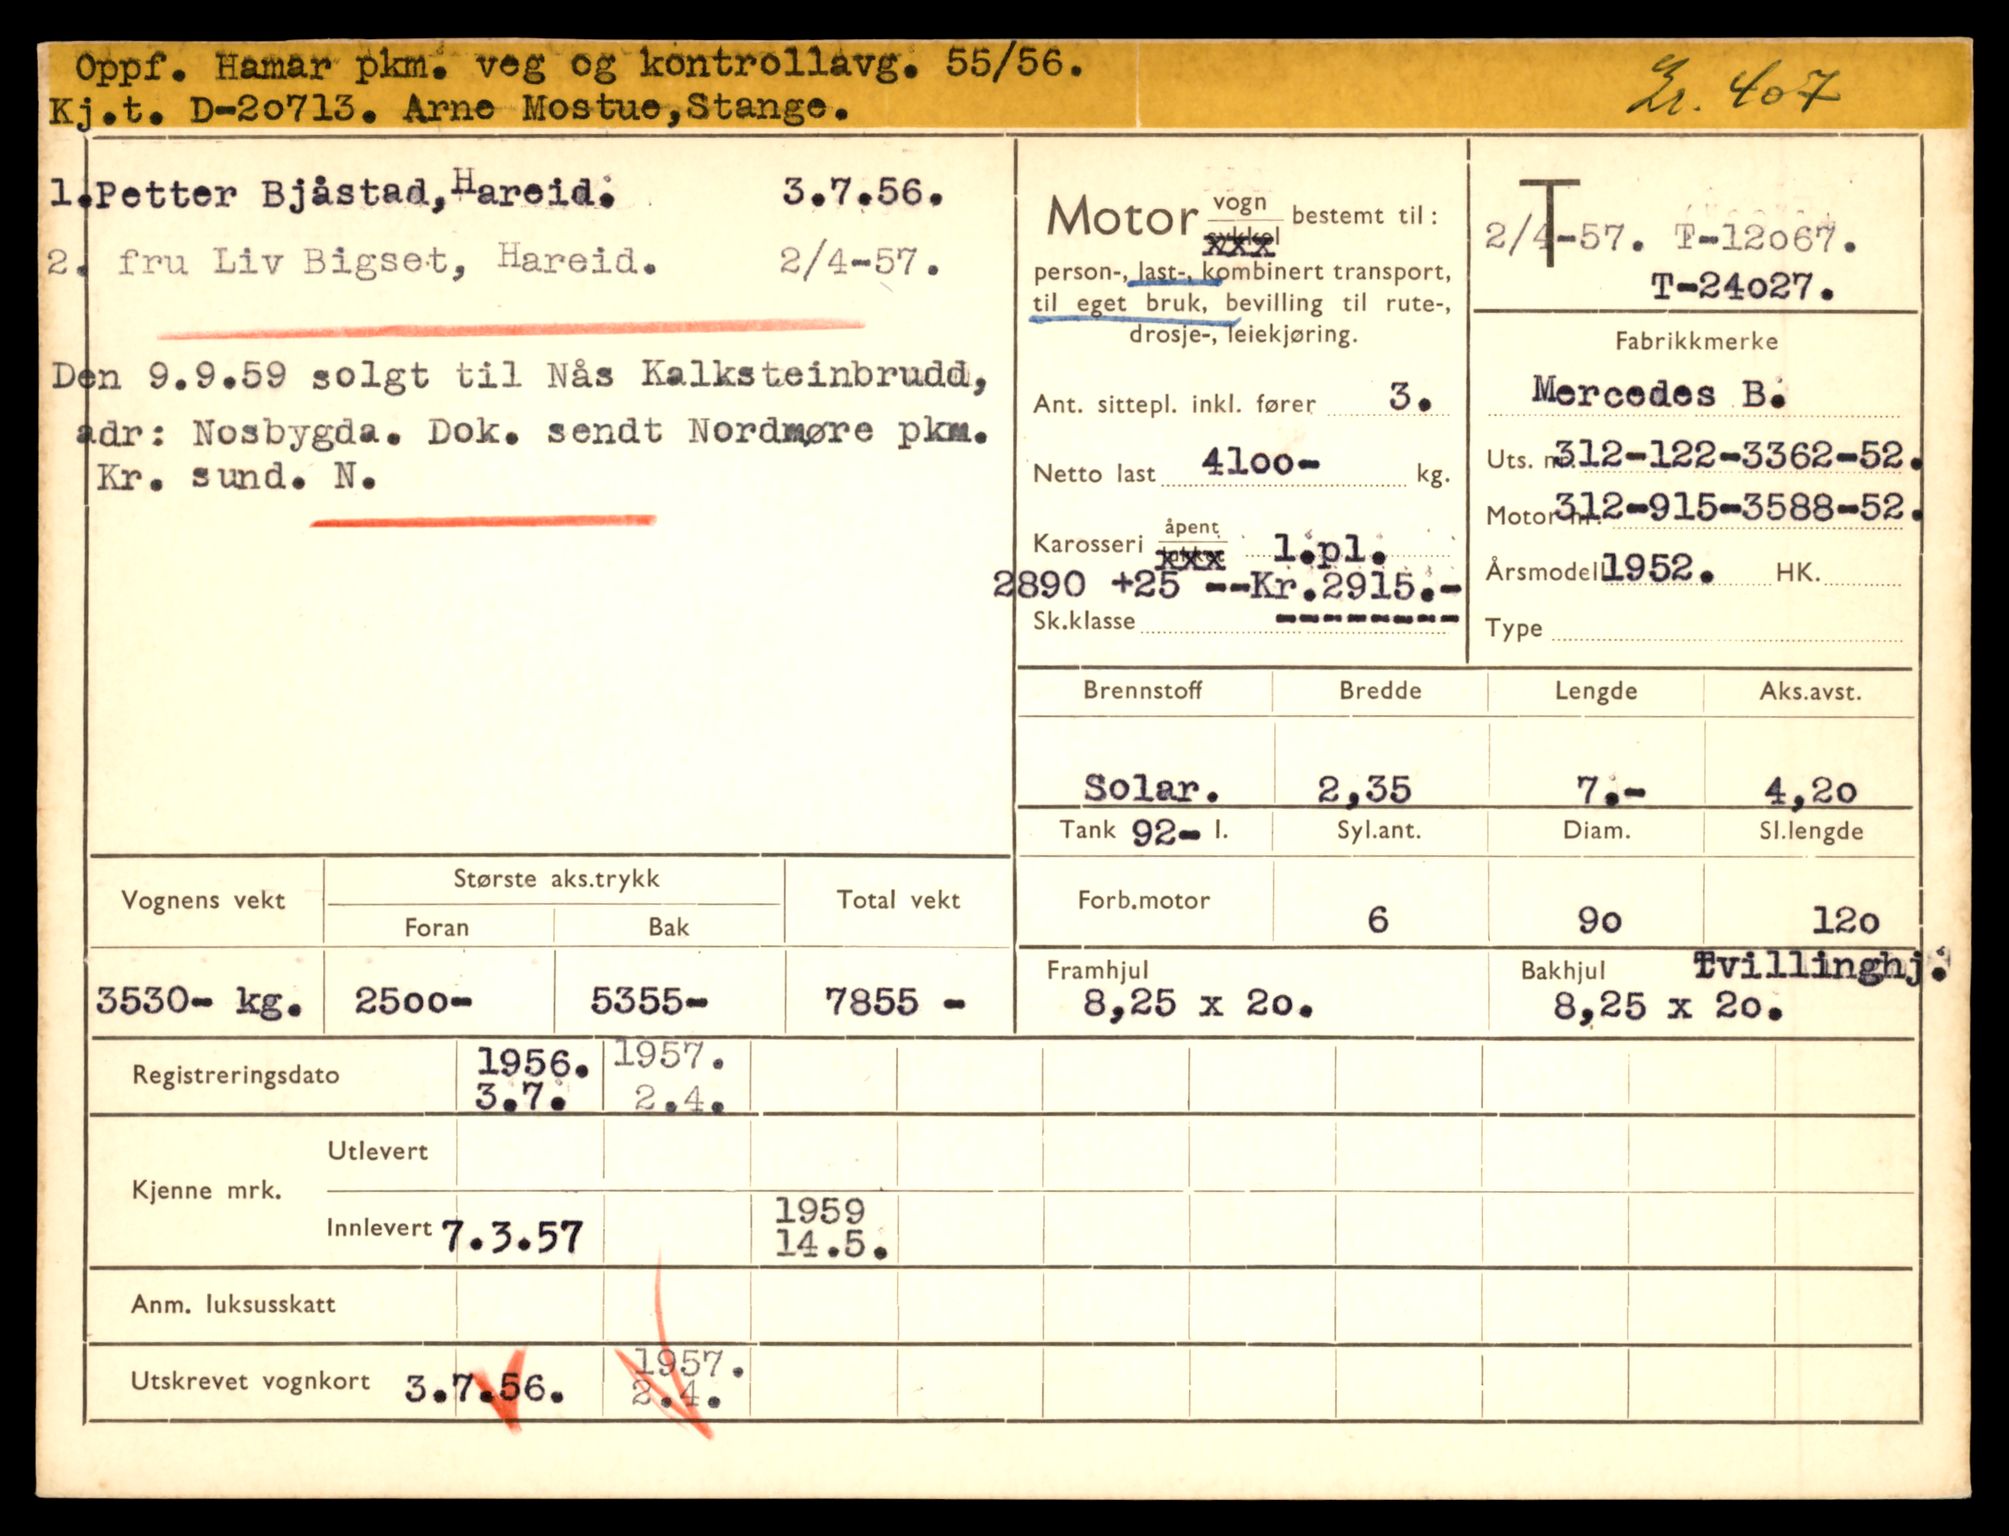 Oppf. Hamar pkm. veg og kontrollavg. 55/56.
Kj.t. D-2o713. Arne Mostue,Stange.
Gr. 407
1.Petter Bjåstad,Hareid. 3.7.56.
2. fru Liv Bigset, Hareid. 2/4-57.
Den 9.9.59 solgt til Nås Kalksteinbrudd,
adr: Nosbygda. Dok. sendt Nordmøre pkm.
Kr. sund. N.
Motor vogn bestemt til:
sykkel
xxx
person-, last-, kombinert transport,
til eget bruk, bevilling til rute-,
drosje-, leiekjøring.
Ant. sittepl. inkl. fører 3.
Netto last 41oo- kg.
Karosseri åpent 1.pl.
xxx
289o +25 --Kr.2915.-
Sk.klasse --------
T
2/4-57. T-12o67.
T-24o27.
Fabrikkmerke
Mercedes B.
Uts. nr. 312-122-3362-52.
Motor nr. 312-915-3588-52.
Årsmodell 1952. HK.
Type
Brennstoff Bredde Lengde Aks.avst.
Solar. 2,35 7.- 4,2o
Tank 92- l. Syl.ant. Diam. Sl.lengde
Forb.motor 6 9o 12o
Framhjul Bakhjul Tvillinghj.
8,25 x 2o. 8,25 x 2o.
Vognens vekt Største aks.trykk Total vekt
Foran Bak
3530- kg. 25oo- 5355- 7855 -
Registreringsdato 1956. 1957.
3.7. 2.4.
Kjenne mrk. Utlevert
Innlevert 7.3.57 1959
14.5.
Anm. luksusskatt
Utskrevet vognkort 3.7.56. 1957.
2.4.